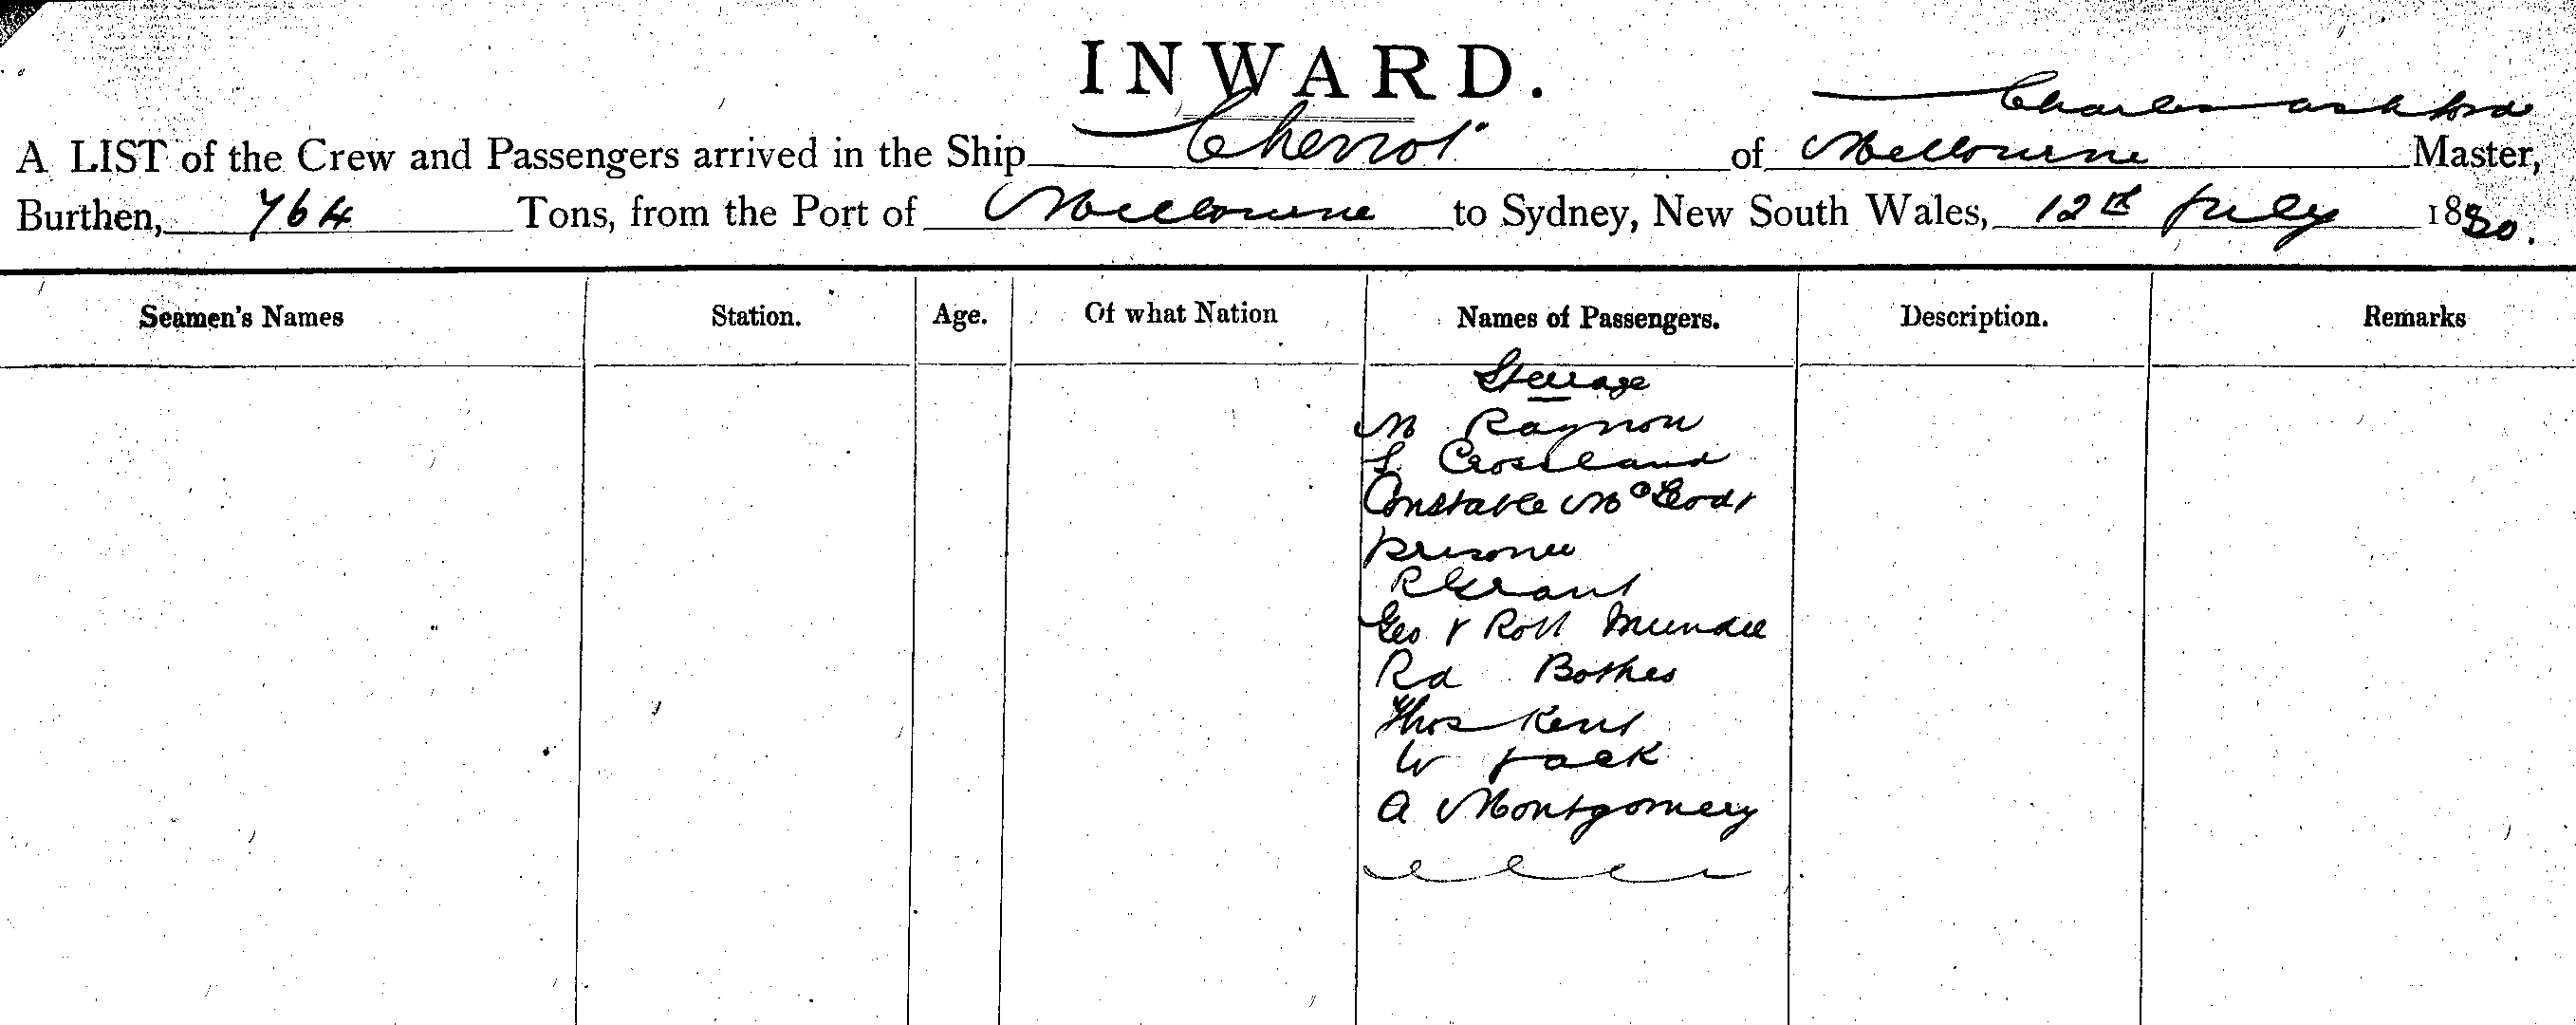 INWARD.
Charles Ashford
A LIST of the Crew and Passengers arrived in the Ship Cheviot of Melbourne Master,
Burthen, 764 Tons, from the Port of Melbourne to Sydney, New South Wales, 12th July 1880.
Seamen's Names Station. Age. Of what Nation Names of Passengers. Description. Remarks
Steerage
M
L Crossland
Constable McLeod &
prisoner
R Grant
Geo & Robt Mundee
Rd Bothes
Thos Kent
W Jack
A Montgomery